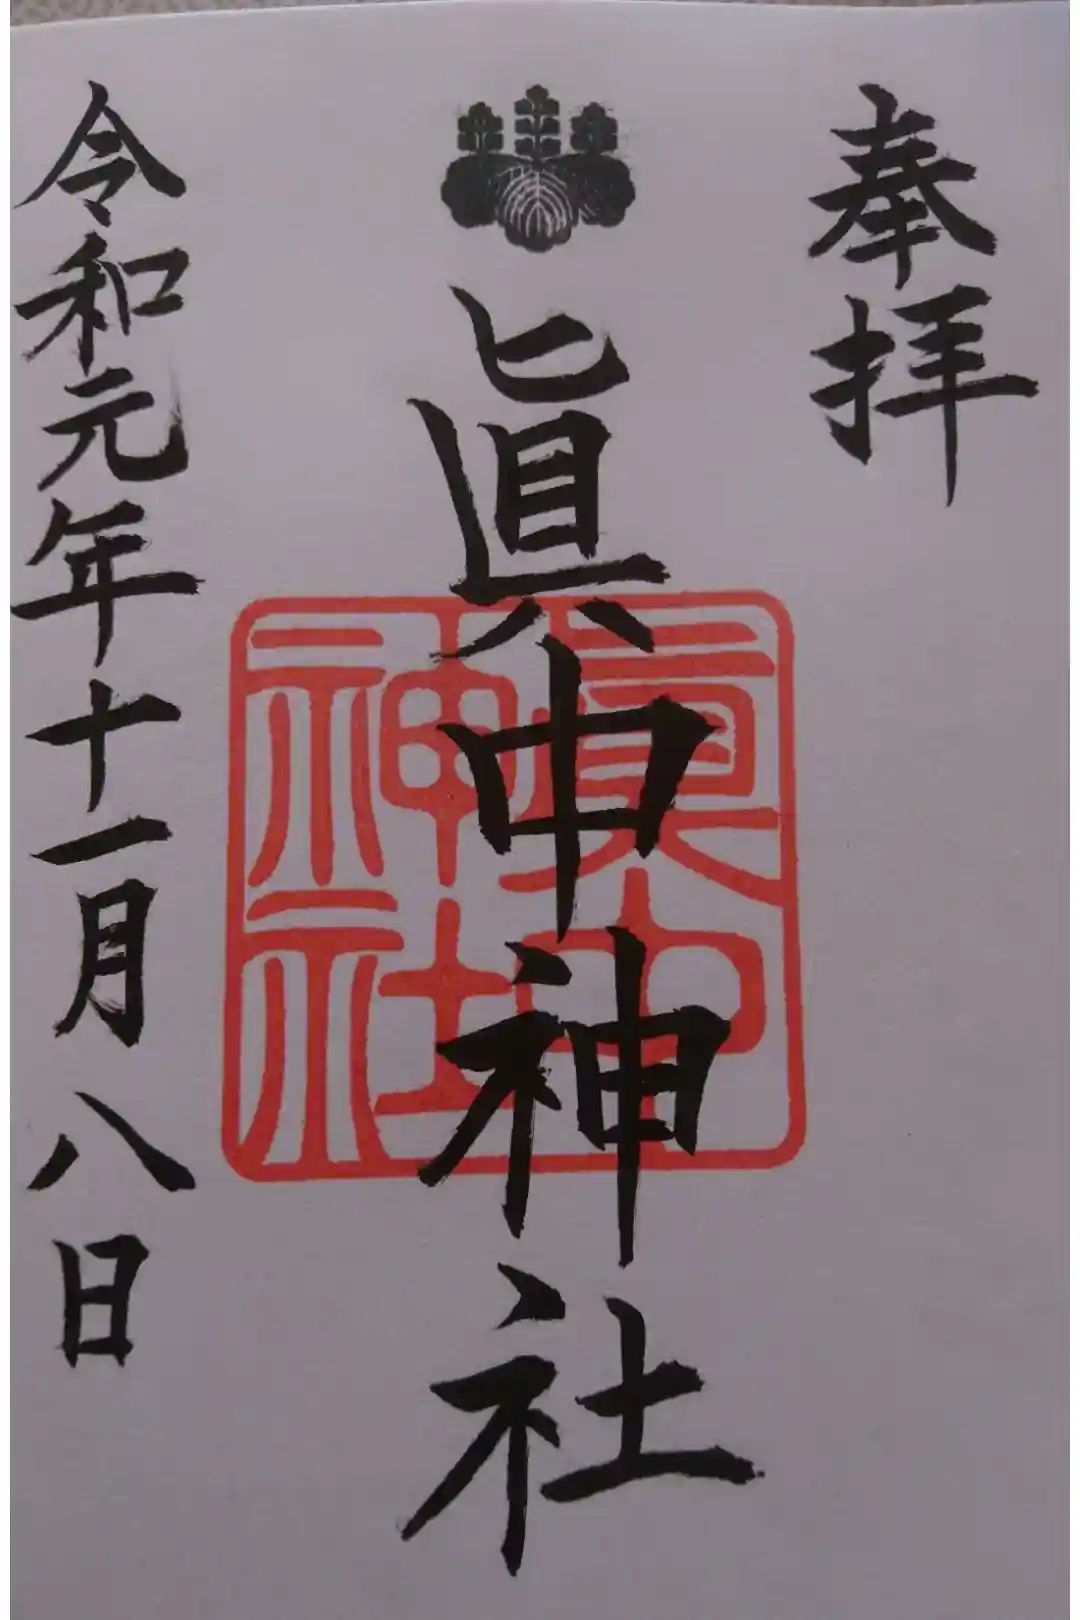 奉拝
眞中神社
眞中
神社
令和元年十一月八日